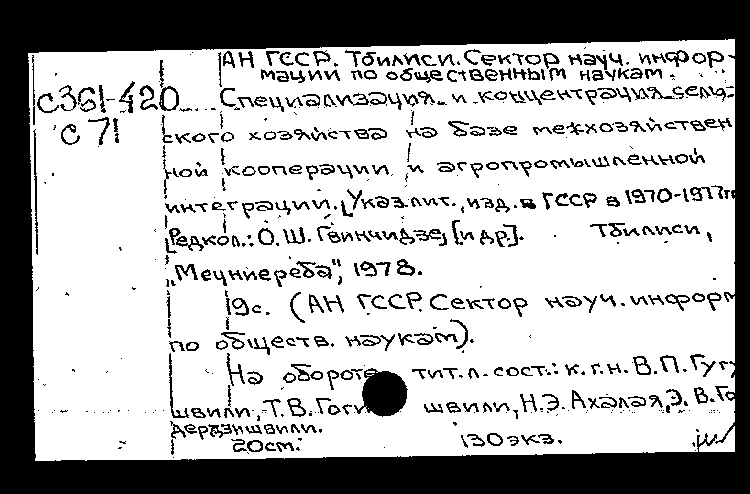 АН ГССР. Тбилиси. Сектор науч. инфор-
мации по общественным наукам.
с361-420
с 71
Специализация и концентрация сель-
ского хозяйства на базе межхозяйствен
ной кооперации и агропромышленной
интеграции. [Указ. лит., изд. в ГССР в 1970-1977гг
Редкол.: О.Ш. Гвинчидзе, [и др]. Тбилиси,
„Мецниереба", 1978.
19с. (АН ГССР. Сектор науч. информ
по обществ. наукам).
На обороте тит.л. сост.: к.г.н. В.П. Гугу
швили, Т.В. Гоги швили, Н.Э. Ахалая, Э.В. Го
дердзишвили.
20см. 130экз.